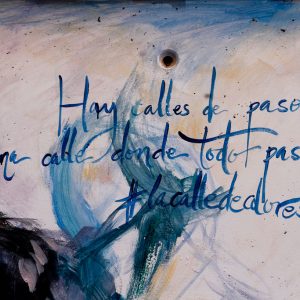 Hay calles de paso
na calle donde todo pas
#lacalledecolores